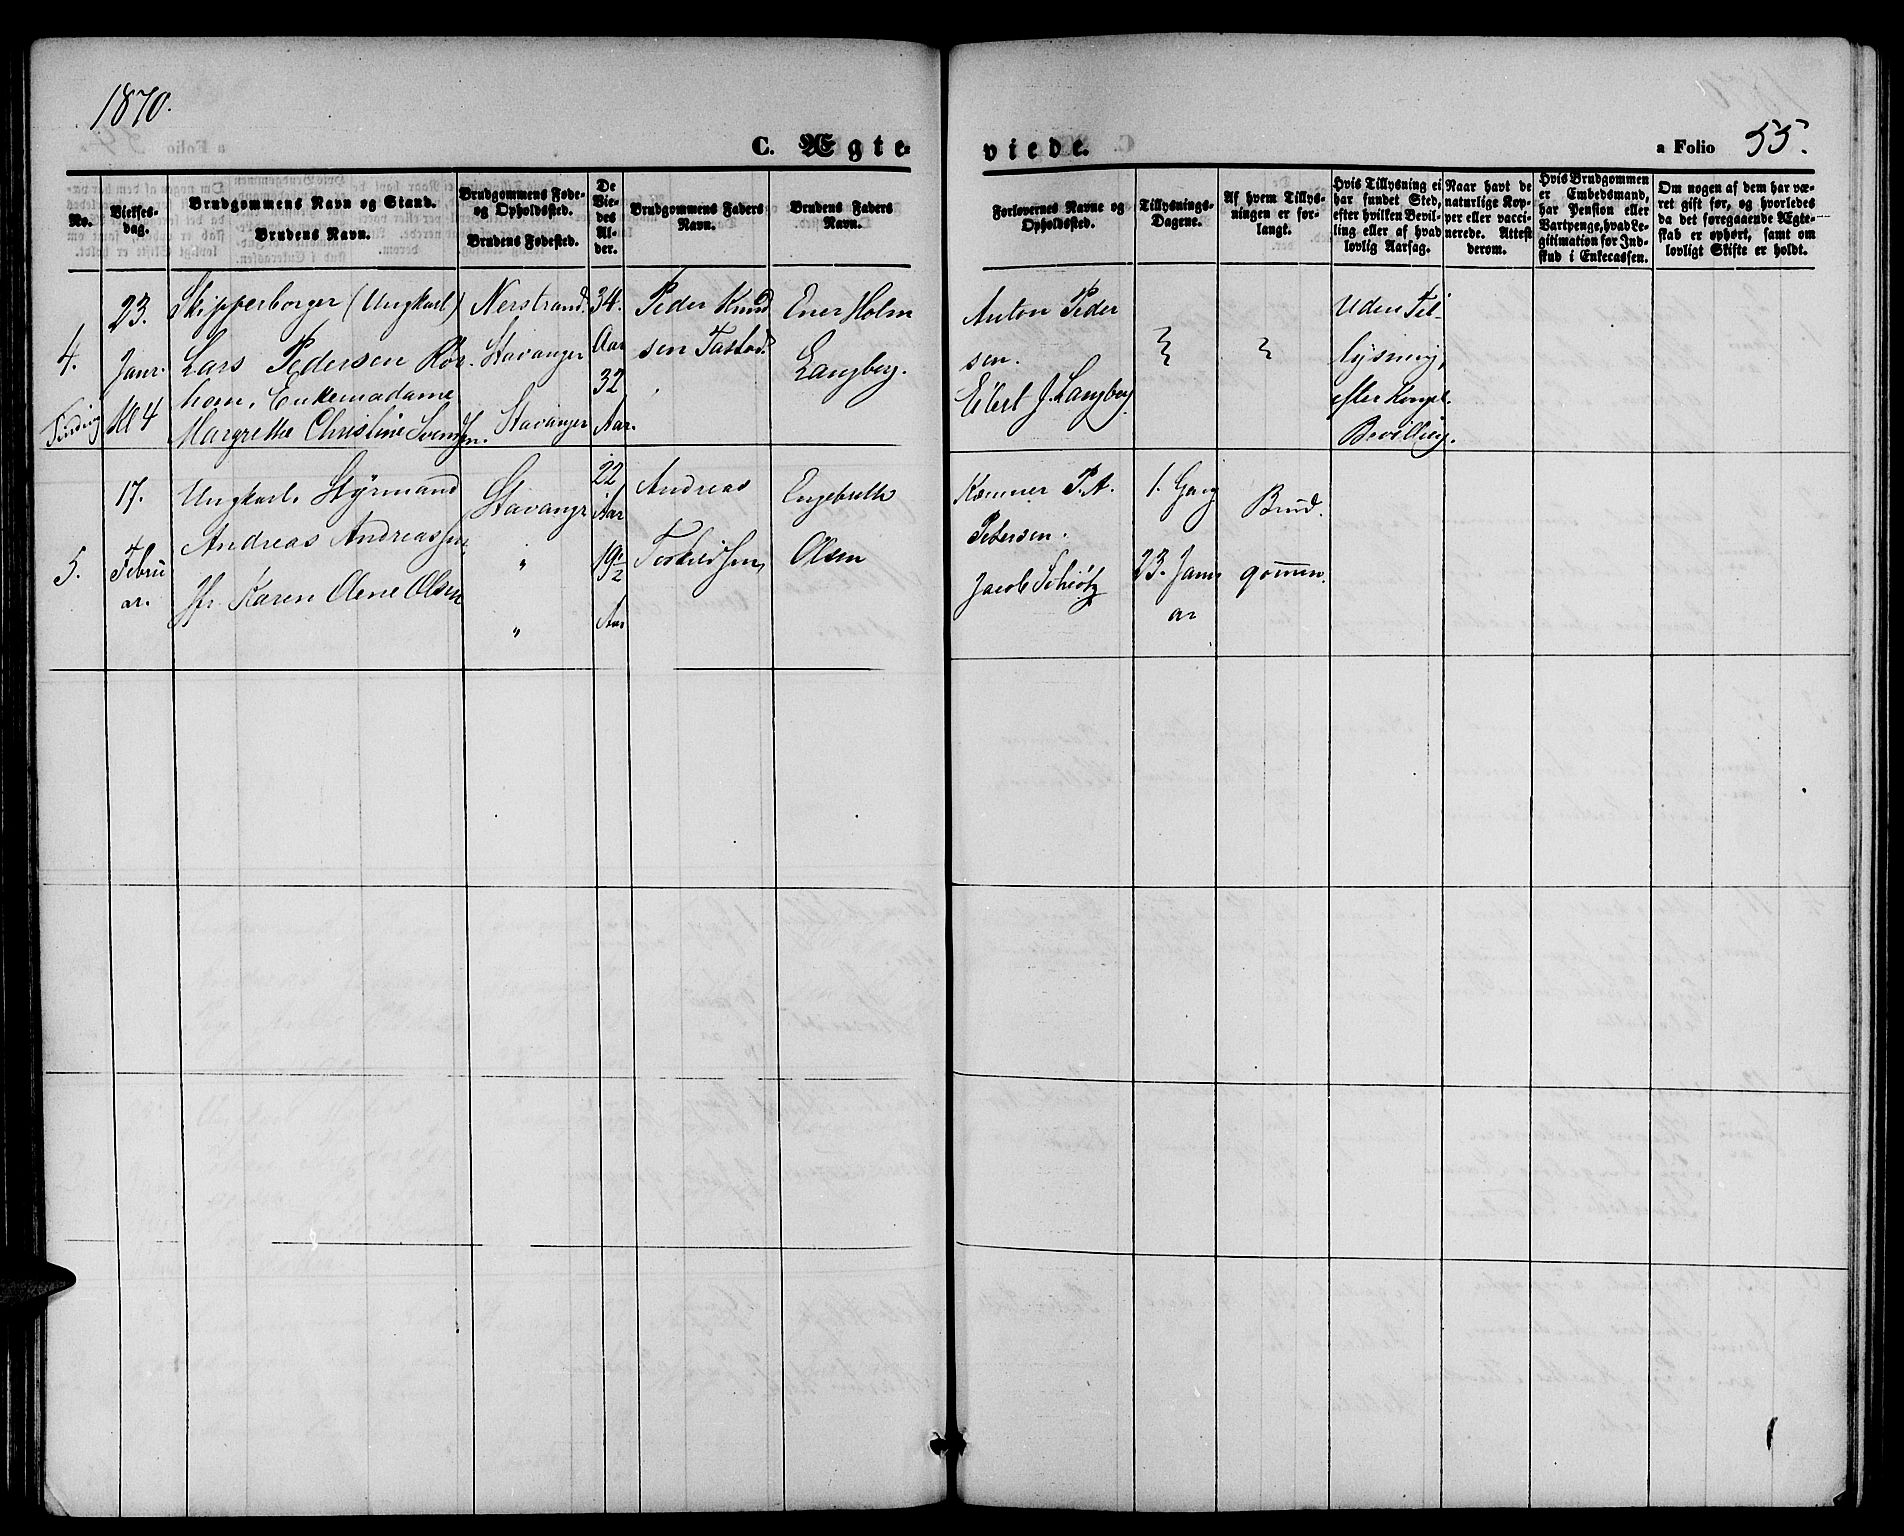 1870.
C. Ægte-
viede.
a Folio 55.
No.
Vielses-
dag.
Brudgommens Navn og Stand.
Brudens Navn.
Brudgommens Føde-
og Opholdssted.
Brudens Fødested.
De
Vie-
des
Al-
der.
Brudgommens Faders
Navn.
Brudens Faders
Navn.
Forlovernes Navne og
Opholdssted.
Tillysnings-
Dagene.
Af hvem Tillys-
ningen er for-
langt.
Hvis Tillysning ei
har fundet Sted,
efter hvilken Bevil-
ling eller af hvad
lovlig Aarsag.
Naar havt de
naturlige Kop-
per eller vacci-
nerede. Attest
derom.
Hvis Brudgommen
er Embedsmand,
har Pension eller
Vartpenge, hvad Le-
gitimation for Ind-
skud i Enkecassen.
Om nogen af dem har væ-
ret gift før, og hvorledes
da det foregaaende Ægte-
skab er ophørt, samt om
lovligt Skifte er holdt.
4.
23.
Janr.
Kl 4
Skipperborger (Ungkarl)
Lars Pedersen Rös-
horn, Enkemadame
Margrethe Christine Svendsen.
Nerstrand.
Stavanger
Stavanger
34.
Aar
32
Aar.
Peder Knud
sen Tastad.
Ener Holm
Langberg.
Anton Peder
sen.
Eilert J. Langberg
Uden Til-
lysning,
efter Kongel.
Bevilling.
5.
17.
Febru
ar.
Ungkarl, Styrmand
Andreas Andreassen,
Jfr. Karen Olene Olsen
Stavangr
"
"
22
Aar
19½
Aar
Andreas
Torkildsen,
Engebreth
Olsen
Kæmner P. A.
Petersen.
Jacob Schiøtz
1. Gang
23. Janu
ar
Brud.
gommen.